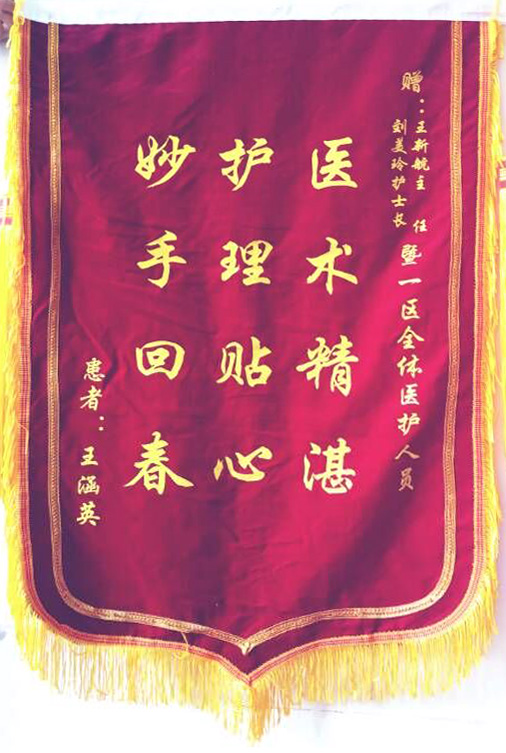 赠：王新航主任
刘美玲护士长
暨一区全体医护人员
医术精湛
护理贴心
妙手回春
患者：王涵英